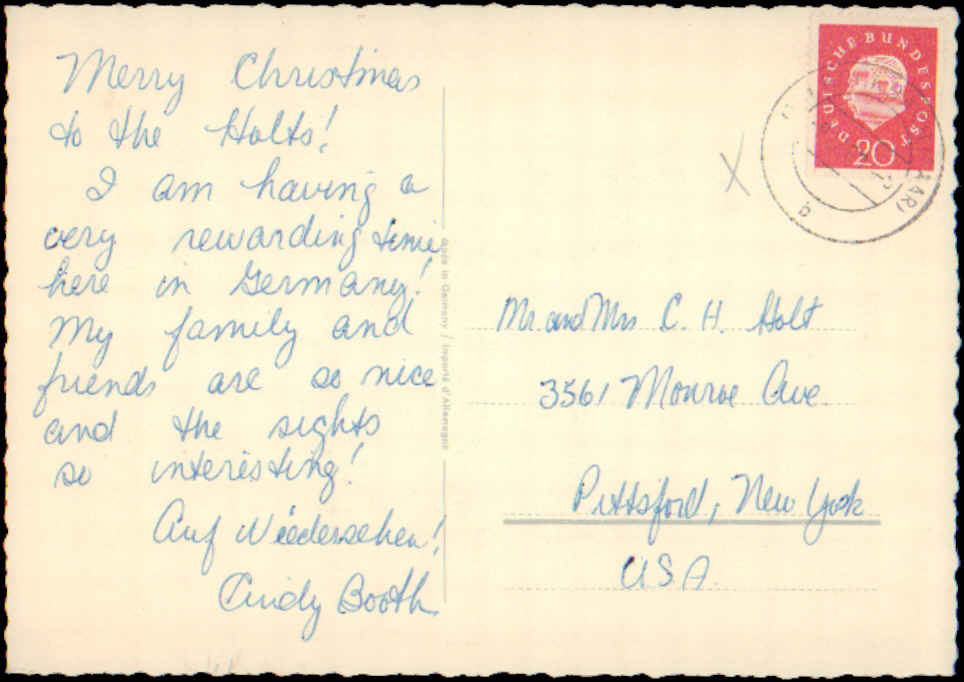 Merry Christmas
to the Holts!
I am having a
very rewarding time
here in Germany!
My family and
friends are so nice
and the sights
so interesting!
Auf Wiedersehen!
Cindy Booth
Made in Germany / Importé d'Allemagne
DEUTSCHE BUNDESPOST
20
b
X
Mr and Mrs C. H. Holt
3561 Monroe Ave.
Pittsford, New York
USA.